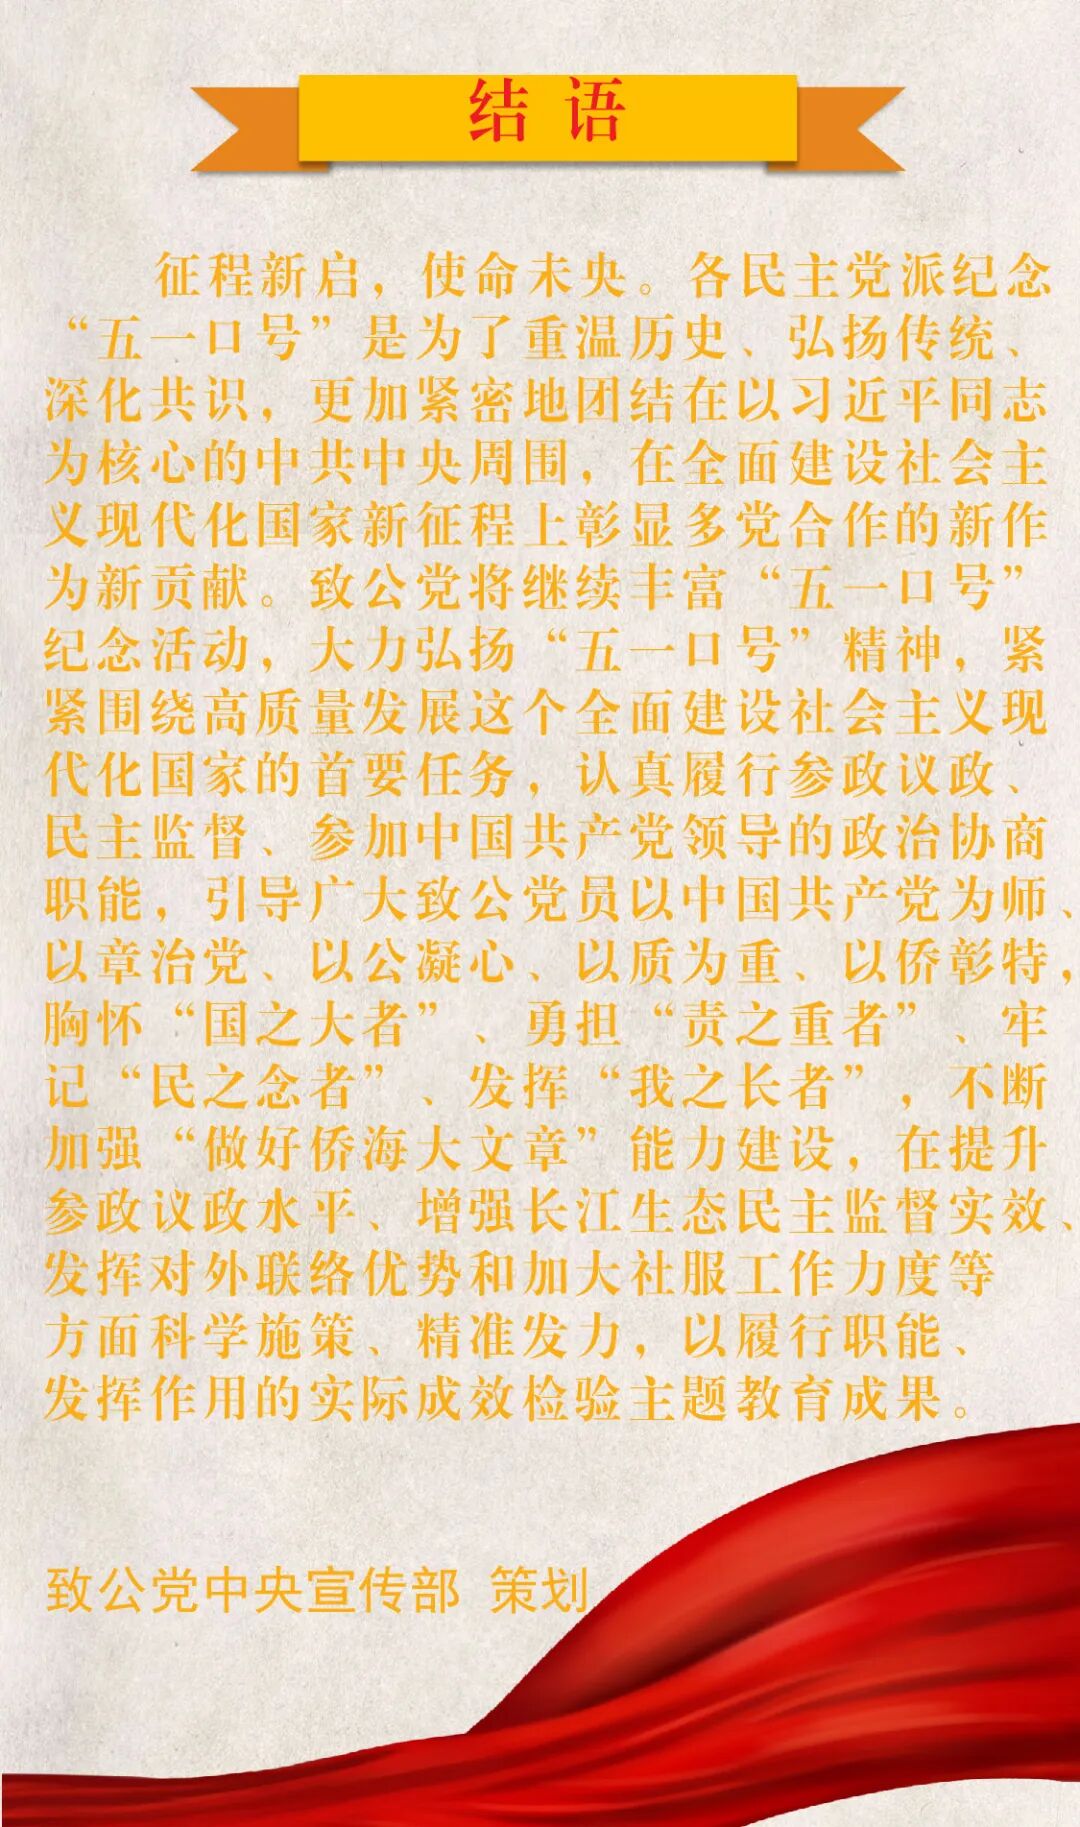 结 语
征程新启，使命未央。各民主党派纪念
“五一口号”是为了重温历史、弘扬传统、
深化共识，更加紧密地团结在以习近平同志
为核心的中共中央周围，在全面建设社会主
义现代化国家新征程上彰显多党合作的新作
为新贡献。致公党将继续丰富“五一口号”
纪念活动，大力弘扬“五一口号”精神，紧
紧围绕高质量发展这个全面建设社会主义现
代化国家的首要任务，认真履行参政议政、
民主监督、参加中国共产党领导的政治协商
职能，引导广大致公党员以中国共产党为师、
以章治党、以公凝心、以质为重、以侨彰特，
胸怀“国之大者”、勇担“责之重者”、牢
记“民之念者”、发挥“我之长者”，不断
加强“做好侨海大文章”能力建设，在提升
参政议政水平、增强长江生态民主监督实效、
发挥对外联络优势和加大社服工作力度等
方面科学施策、精准发力，以履行职能、
发挥作用的实际成效检验主题教育成果。
致公党中央宣传部 策划